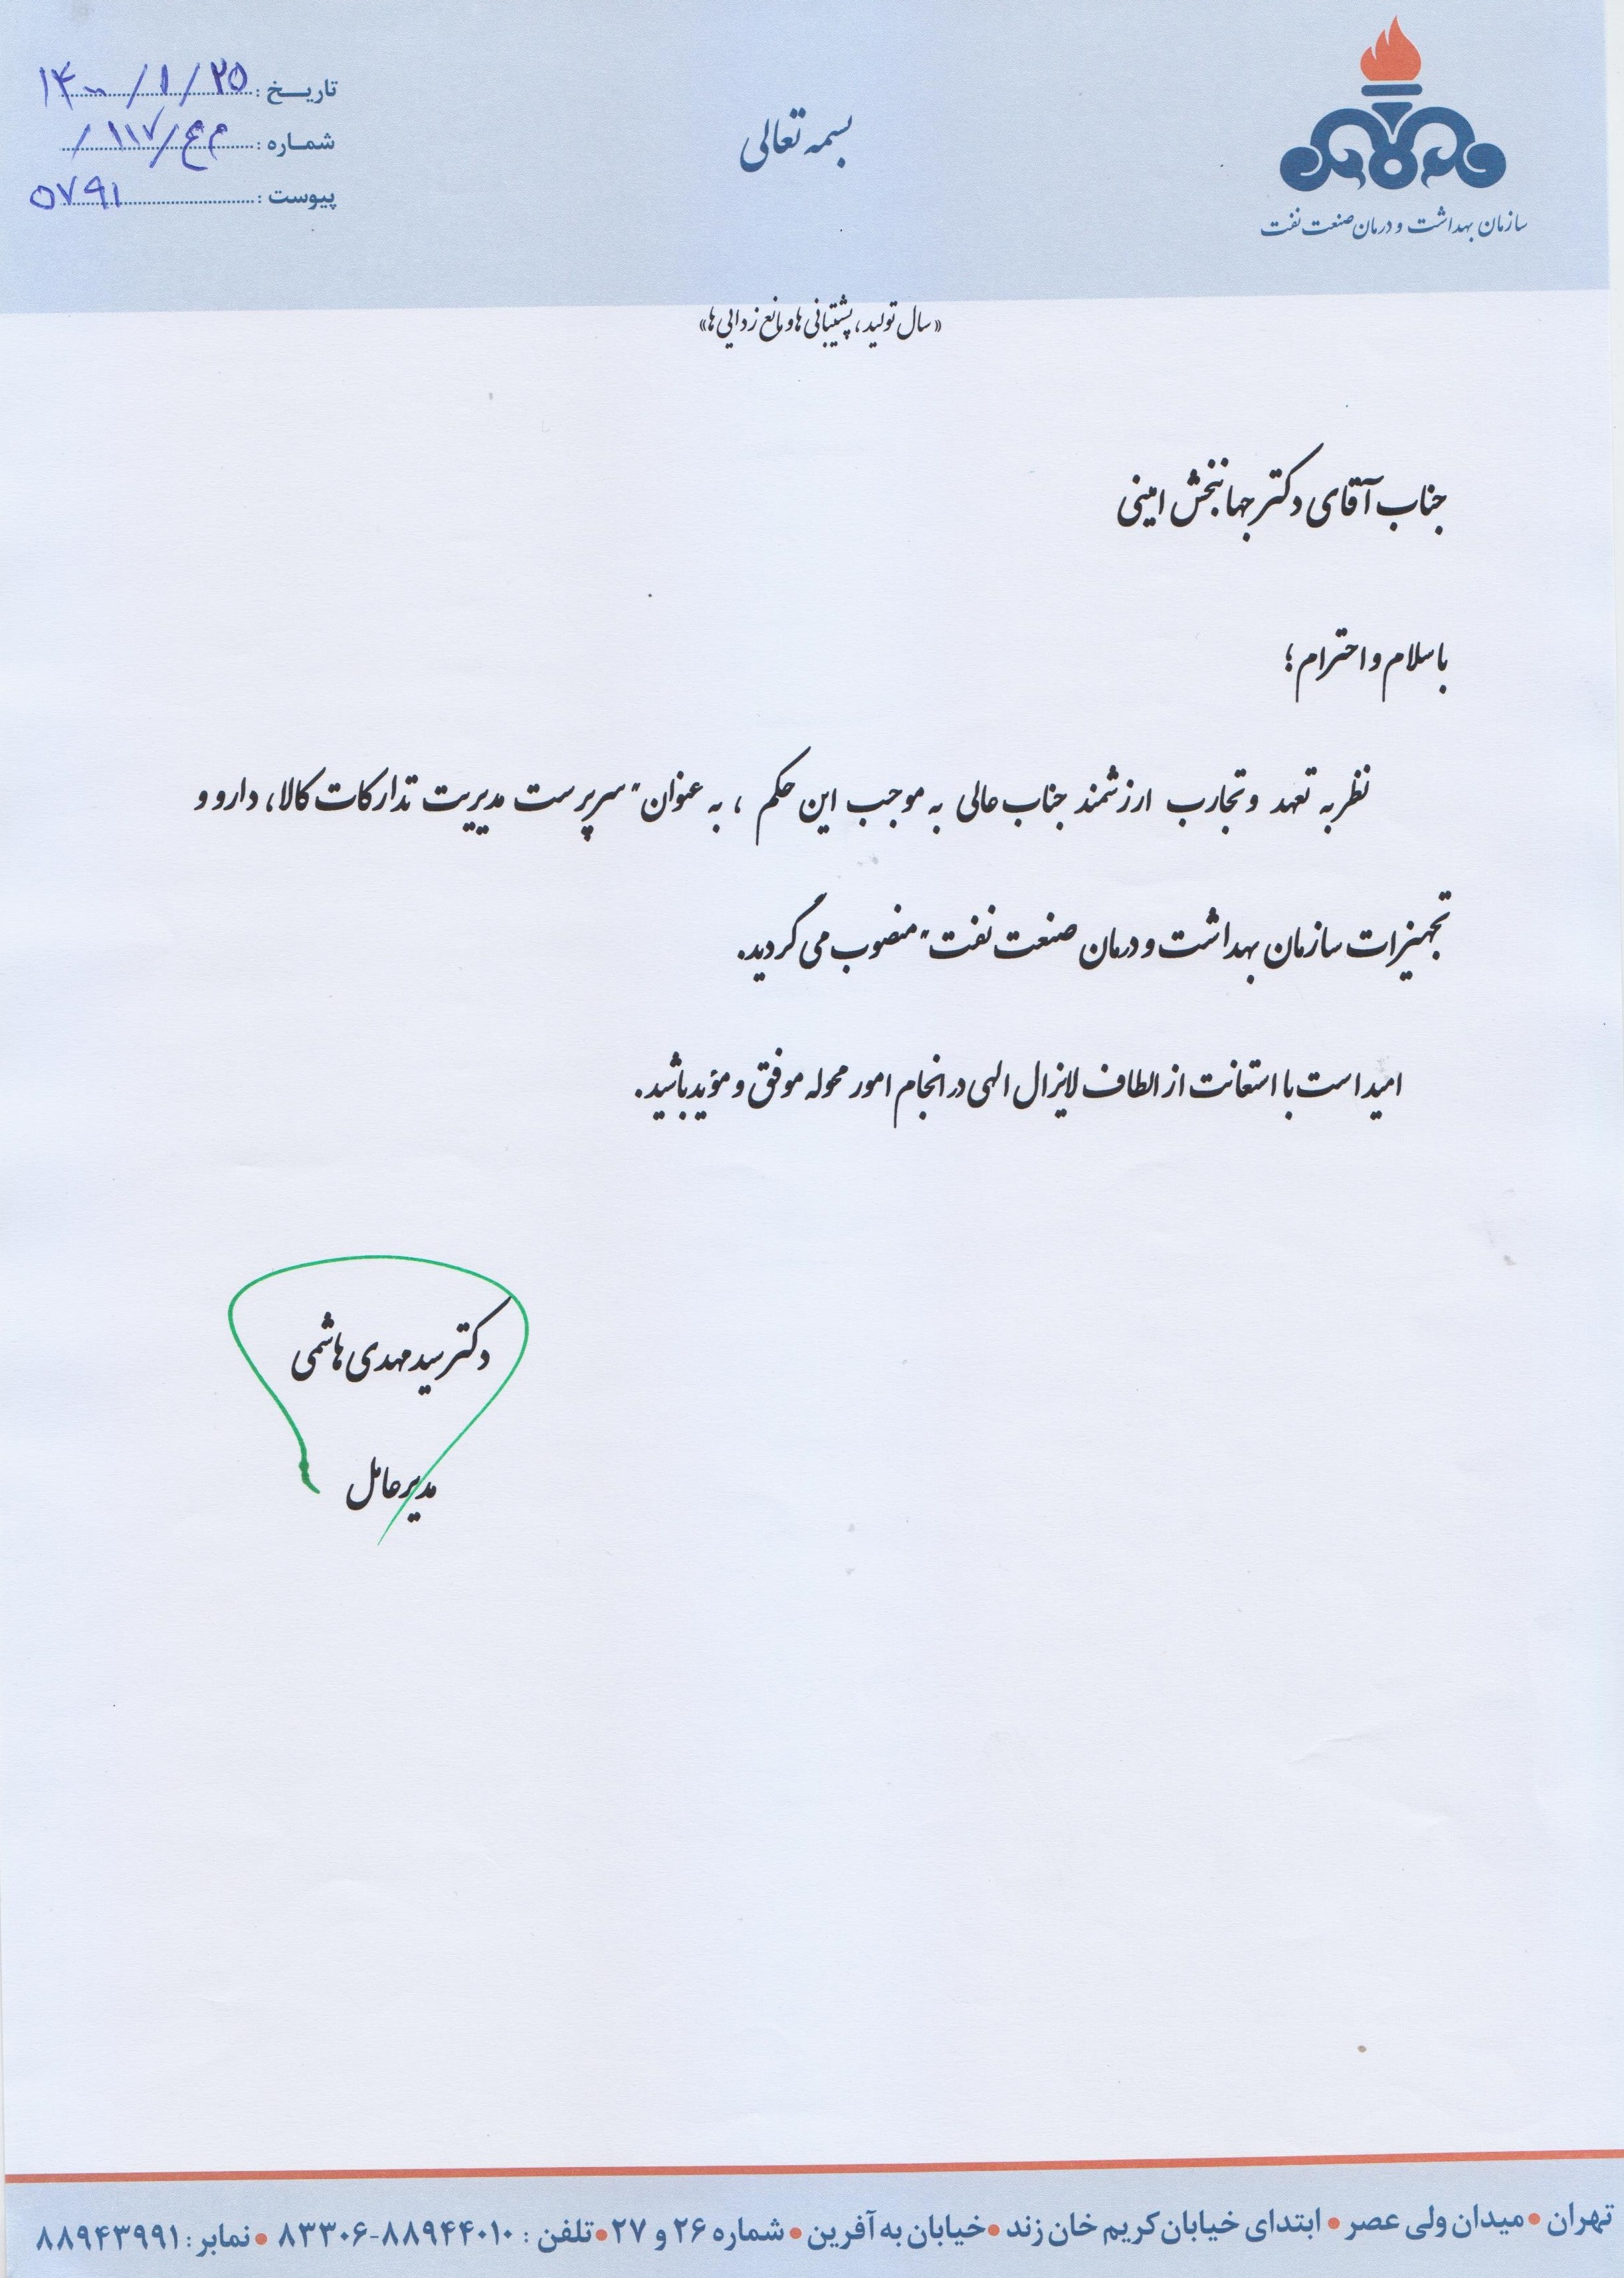 تاریخ : ۱۴۰۰/۱/۲۵
شماره : م ع/۱۱۷/
پیوست : ۵۷۹۱
بسمه تعالی
سازمان بهداشت و درمان صنعت نفت
«سال تولید، پشتیبانی ها و مانع زدایی ها»
جناب آقای دکتر جهانبخش امینی
با سلام و احترام؛
نظر به تعهد و تجارب ارزشمند جناب عالی به موجب این حکم ، به عنوان "سرپرست مدیریت تدارکات کالا، دارو و
تجهیزات سازمان بهداشت و درمان صنعت نفت" منصوب می گردید.
امید است با استعانت از الطاف لایزال الهی در انجام امور محوله موفق و مؤید باشید.
دکتر سید مهدی هاشمی
مدیرعامل
تهران • میدان ولی عصر • ابتدای خیابان کریم خان زند • خیابان به آفرین • شماره ۲۶ و ۲۷ • تلفن : ۸۸۹۴۴۰۱۰-۸۳۳۰۶ • نمابر : ۸۸۹۴۳۹۹۱